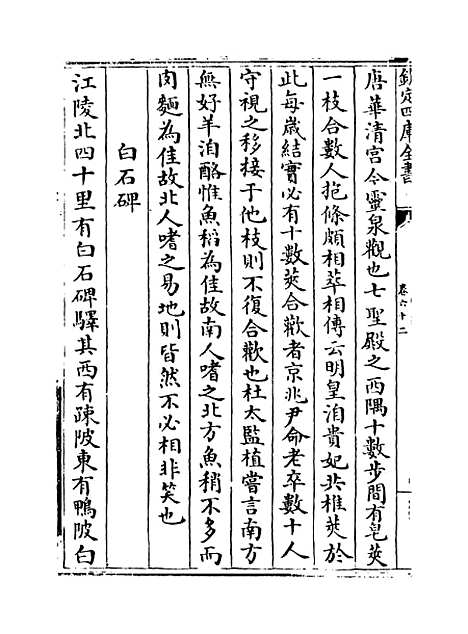 欽定四庫全書
卷六十二
唐華清宮今靈泉觀也七聖殿之西隅十數步間有皂莢
一枝合數人抱條頗相萃相傳云明皇洎貴妃共植於
此每歲結實必有十數莢合歡者京兆尹命老卒數十人
守視之移接于他枝則不復合歡也杜太監植嘗言南方
無好羊洎酪惟魚稻為佳故南人嗜之北方魚稍不多而
肉麵為佳故北人嗜之易地則皆然不必相非笑也
白石碑
江陵北四十里有白石碑驛其西有疎陂東有鴨陂白